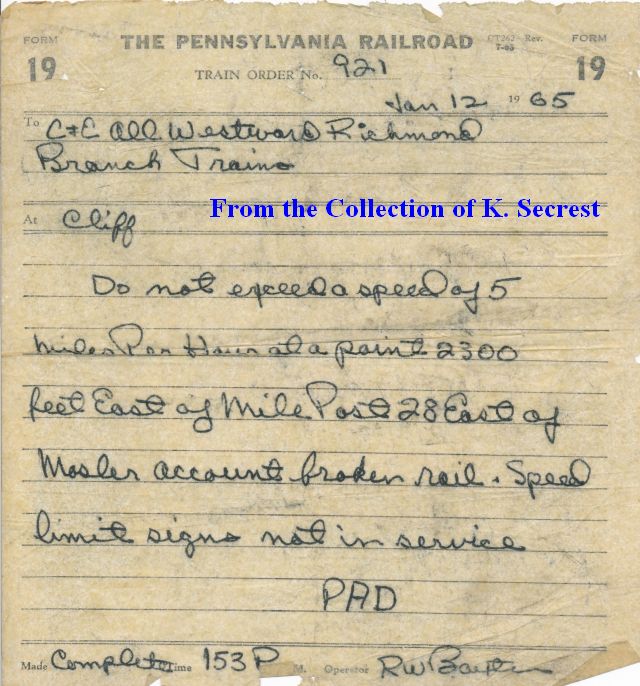 FORM THE PENNSYLVANIA RAILROAD CT262 Rev. 7-63 FORM
19 TRAIN ORDER No. 921 19
Jan 12 1965
To C+E All Westward Richmond
Branch Trains
From the Collection of K. Secrest
At Cliff
Do not exceed a speed of 5
Miles Per Hour at a point 2300
feet East of Mile Post 28 East of
Mosler account broken rail. Speed
limit signs not in service
PAD
Made Complete Time 153 P M. Operator RW